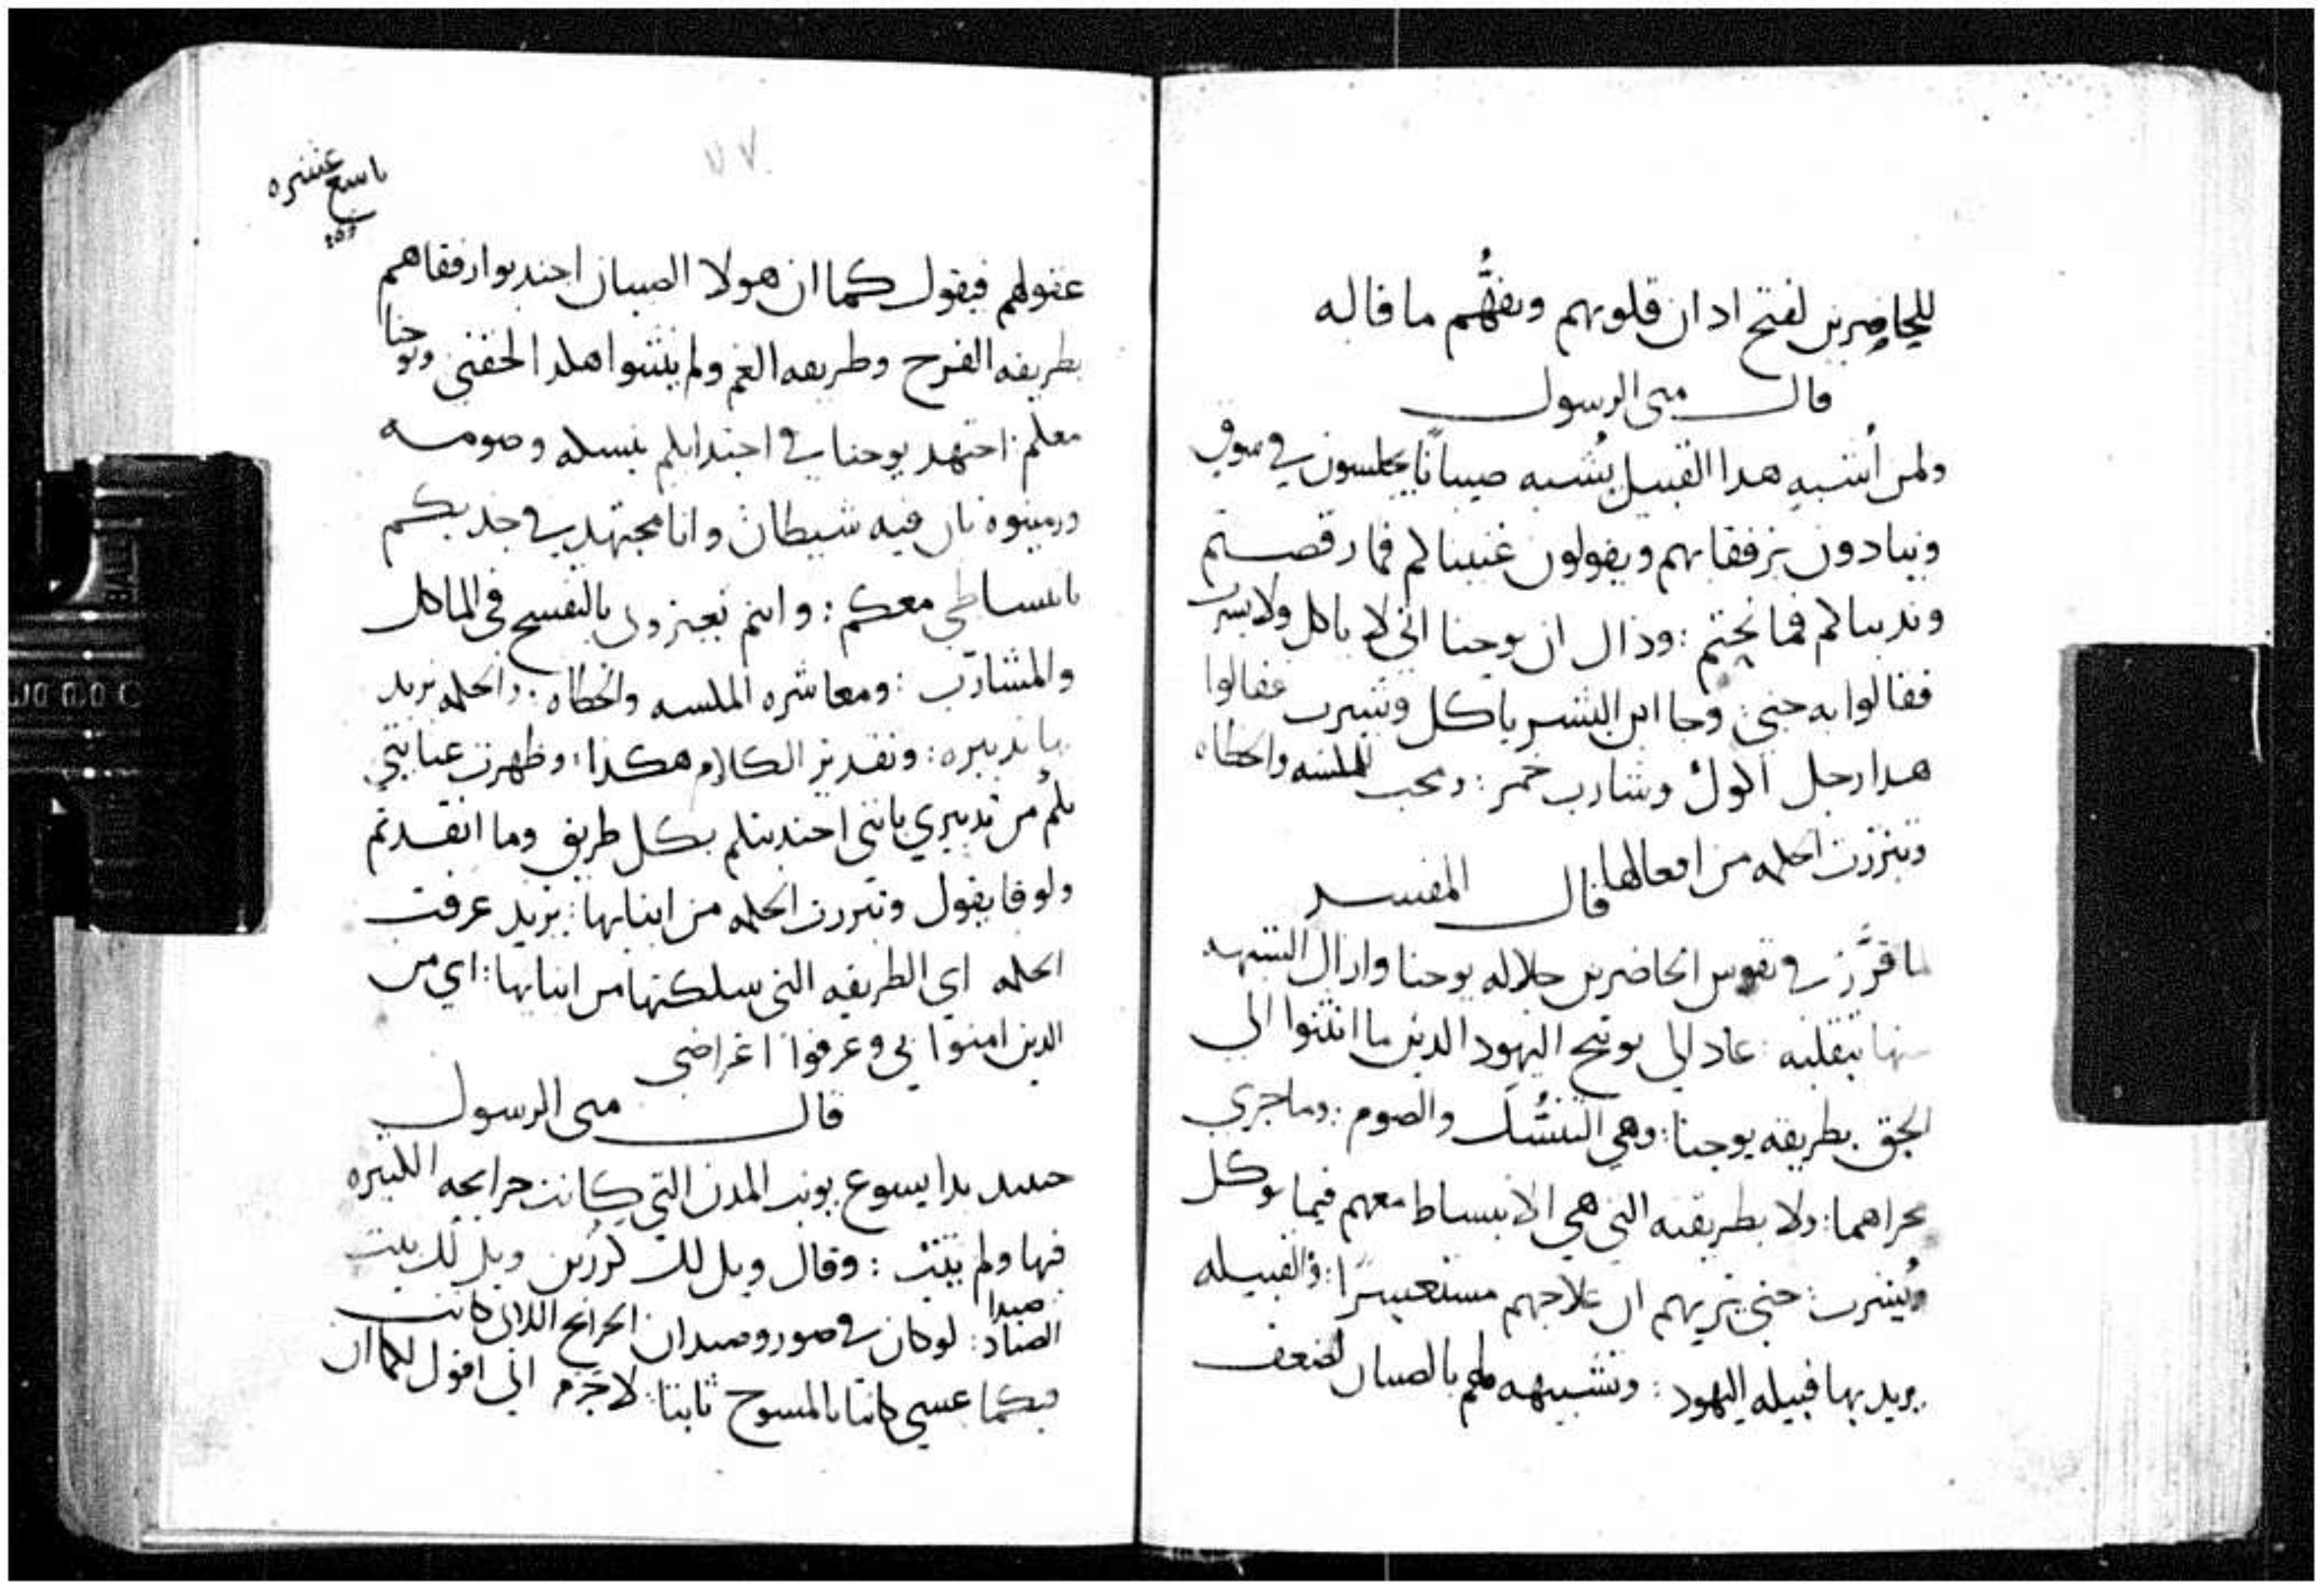 للحاضرين لفتح ادان قلوبهم وتفهُّم ما قاله
قال متى الرسول
ولمن أشبه هدا القبيل يُشبه صبيانًا يجلسون في سوق
وينادون برفقايهم ويقولون غنينا لكم فما رقصتم
وندبنا لكم فما نحتم : وذاك ان يوحنا اتى لا ياكل ولا يشرب
فقالوا به جنى : وجا ابن البشر ياكل ويشرب فقالوا
هدا رجل اكول وشارب خمر : ومحب للمكسه والخطاه
وتبررت الحكمه من افعالها قال المفسر
لما قرَّر في نفوس الحاضرين جلاله يوحنا وازال الشبهه
منها بنقلبه : عاد الى توبيخ اليهود الدين ما انثنوا الى
الحق بطريقه يوحنا : وهي التنسُّك والصوم : وما جرى
مجراهما : ولا بطريقته التي هي الانبساط معهم فيما يوكل
ويُشرب : حتى يريهم ان علاجهم مستعسرًا : والقبيله
يريد بها قبيله اليهود : وتشبيهه لهم بالصبيان لضعف
تاسع عشره
٧٧
عقولهم فيقول كما ان هولا الصبيان اجتدبوا رفقاهم
بطريقه الفرح وطريقه الغم ولم ينثنوا هكدا الحقني ويوحنا
معكم : اجتهد يوحنا في اجتدابكم بنسكه وصومه
ورميتوه بان فيه شيطان وانا مجتهد في جدبكم
بانبساطي معكم : وانتم تعيرون بالتفسح في الماكل
والمشارب : ومعاشره المكسه والخطاه : والحكمه يريد
بها تدبيره : وتقدير الكلام هكدا : وظهرت عنايتي
بكم من تدبيري بانني اجتدبتكم بكل طريق وما انقدتم
ولوقا يقول وتبررت الحكمه من ابنايها : يريد عرفت
الحكمه اي الطريقه التي سلكتها من ابنايها : اي من
الدين امنوا بي وعرفوا اغراضي
قال متى الرسول
حينيد بدا يسوع يونب المدن التي كانت جرايحه الكثيره
فيها ولم يتبن : وقال ويل لك كورزين ويل لك بيت
صيدا
الصياد : لو كان في صور وصيدان الجرايح اللاتي كانت
فيكما عسي كانتا بالمسوح تابتا : لا جرم اني اقول لكما ان